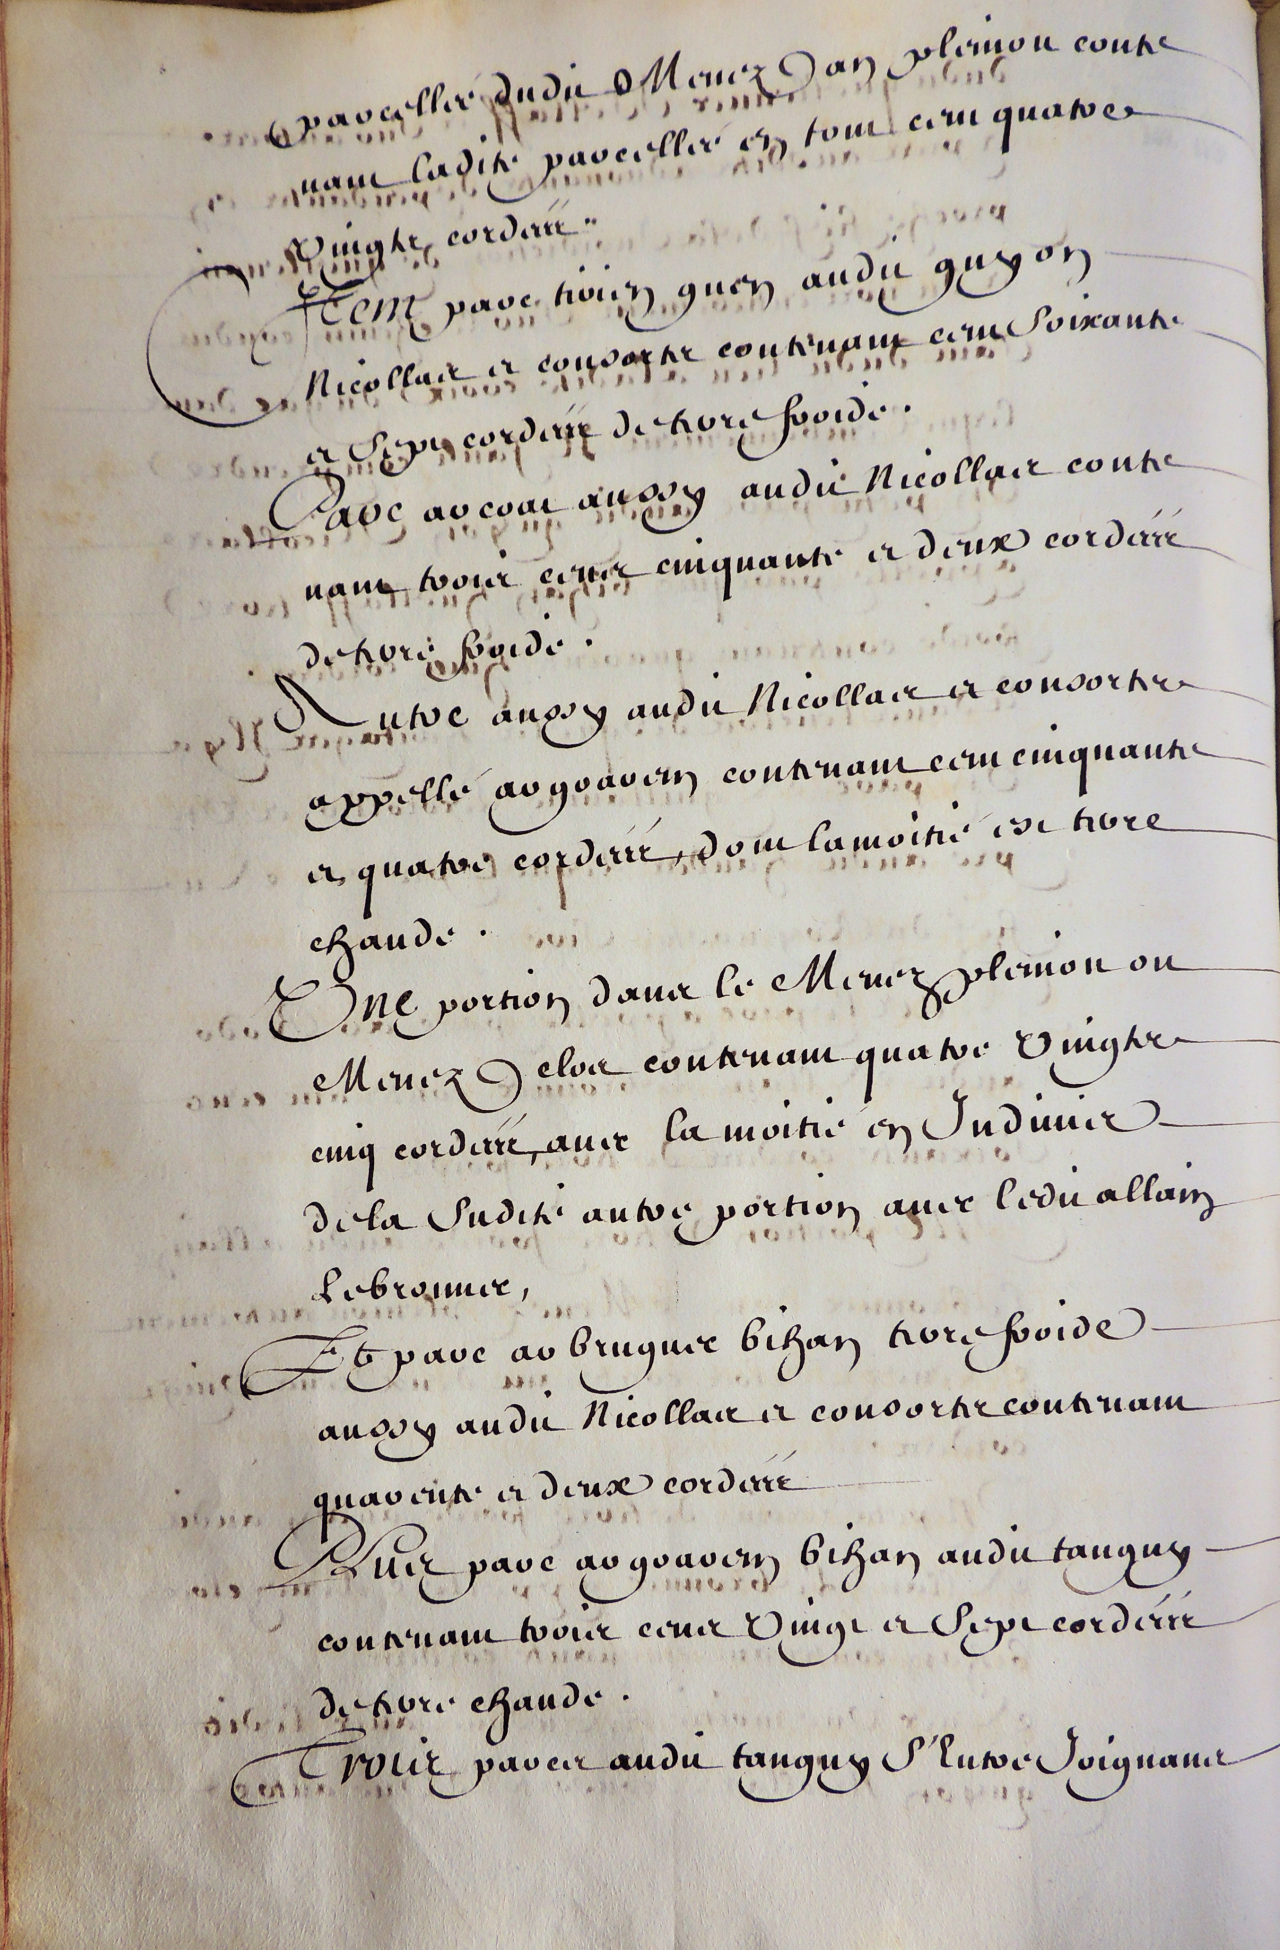 parcelles dudit Menez Dan plemon conte
nant ladite parcelles en tout cent quatre
Vingts cordées
Item parc tivien guen audit guyon
Nicollas et consorts contenant cent Soixante
et Sept cordées de terre froide.
Parc ar coat aussy audit Nicollas conte
nant trois cents cinquante et deux cordées
de terre froide.
Autre aussy audit Nicollas et consorts
appellé ar goarem contenant cent cinquante
et quatre cordées, dont la moitié est terre
chaude.
Une portion dans le Menez plemon ou
Menez Delos contenant quatre Vingts
cinq cordées, avec la moitié en Indivis
de la Sudite autre portion avec ledit allain
Lebronnec,
Et parc ar bruguec bihan terre froide
aussy audit Nicollas et consorts contenant
quarente et deux cordées
Plus parc ar goarem bihan audit tanguy
contenant trois cents Vingt et Sept cordées
de terre chaude.
Trois parcs audit tanguy S'Entre Joignans